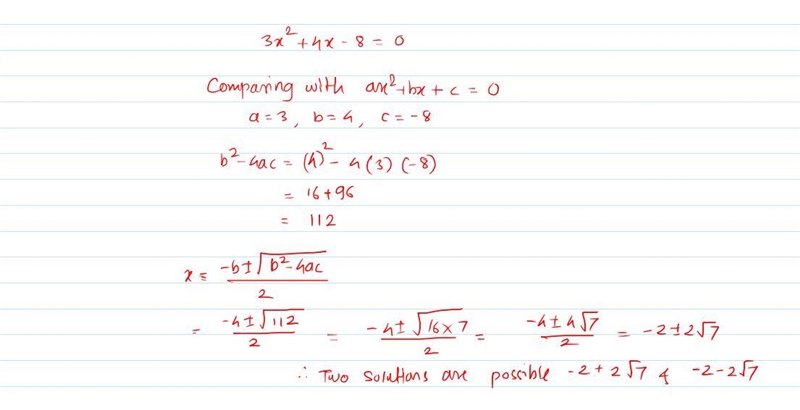 3x² + 4x - 8 = 0
Comparing with ax² + bx + c = 0
a = 3, b = 4, c = -8
b² - 4ac = (4)² - 4(3)(-8)
= 16 + 96
= 112
x = (-b ± √(b² - 4ac))/2
= (-4 ± √112)/2 = (-4 ± √(16 × 7))/2 = (-4 ± 4√7)/2 = -2 ± 2√7
∴ Two solutions are possible -2 + 2√7 & -2 - 2√7